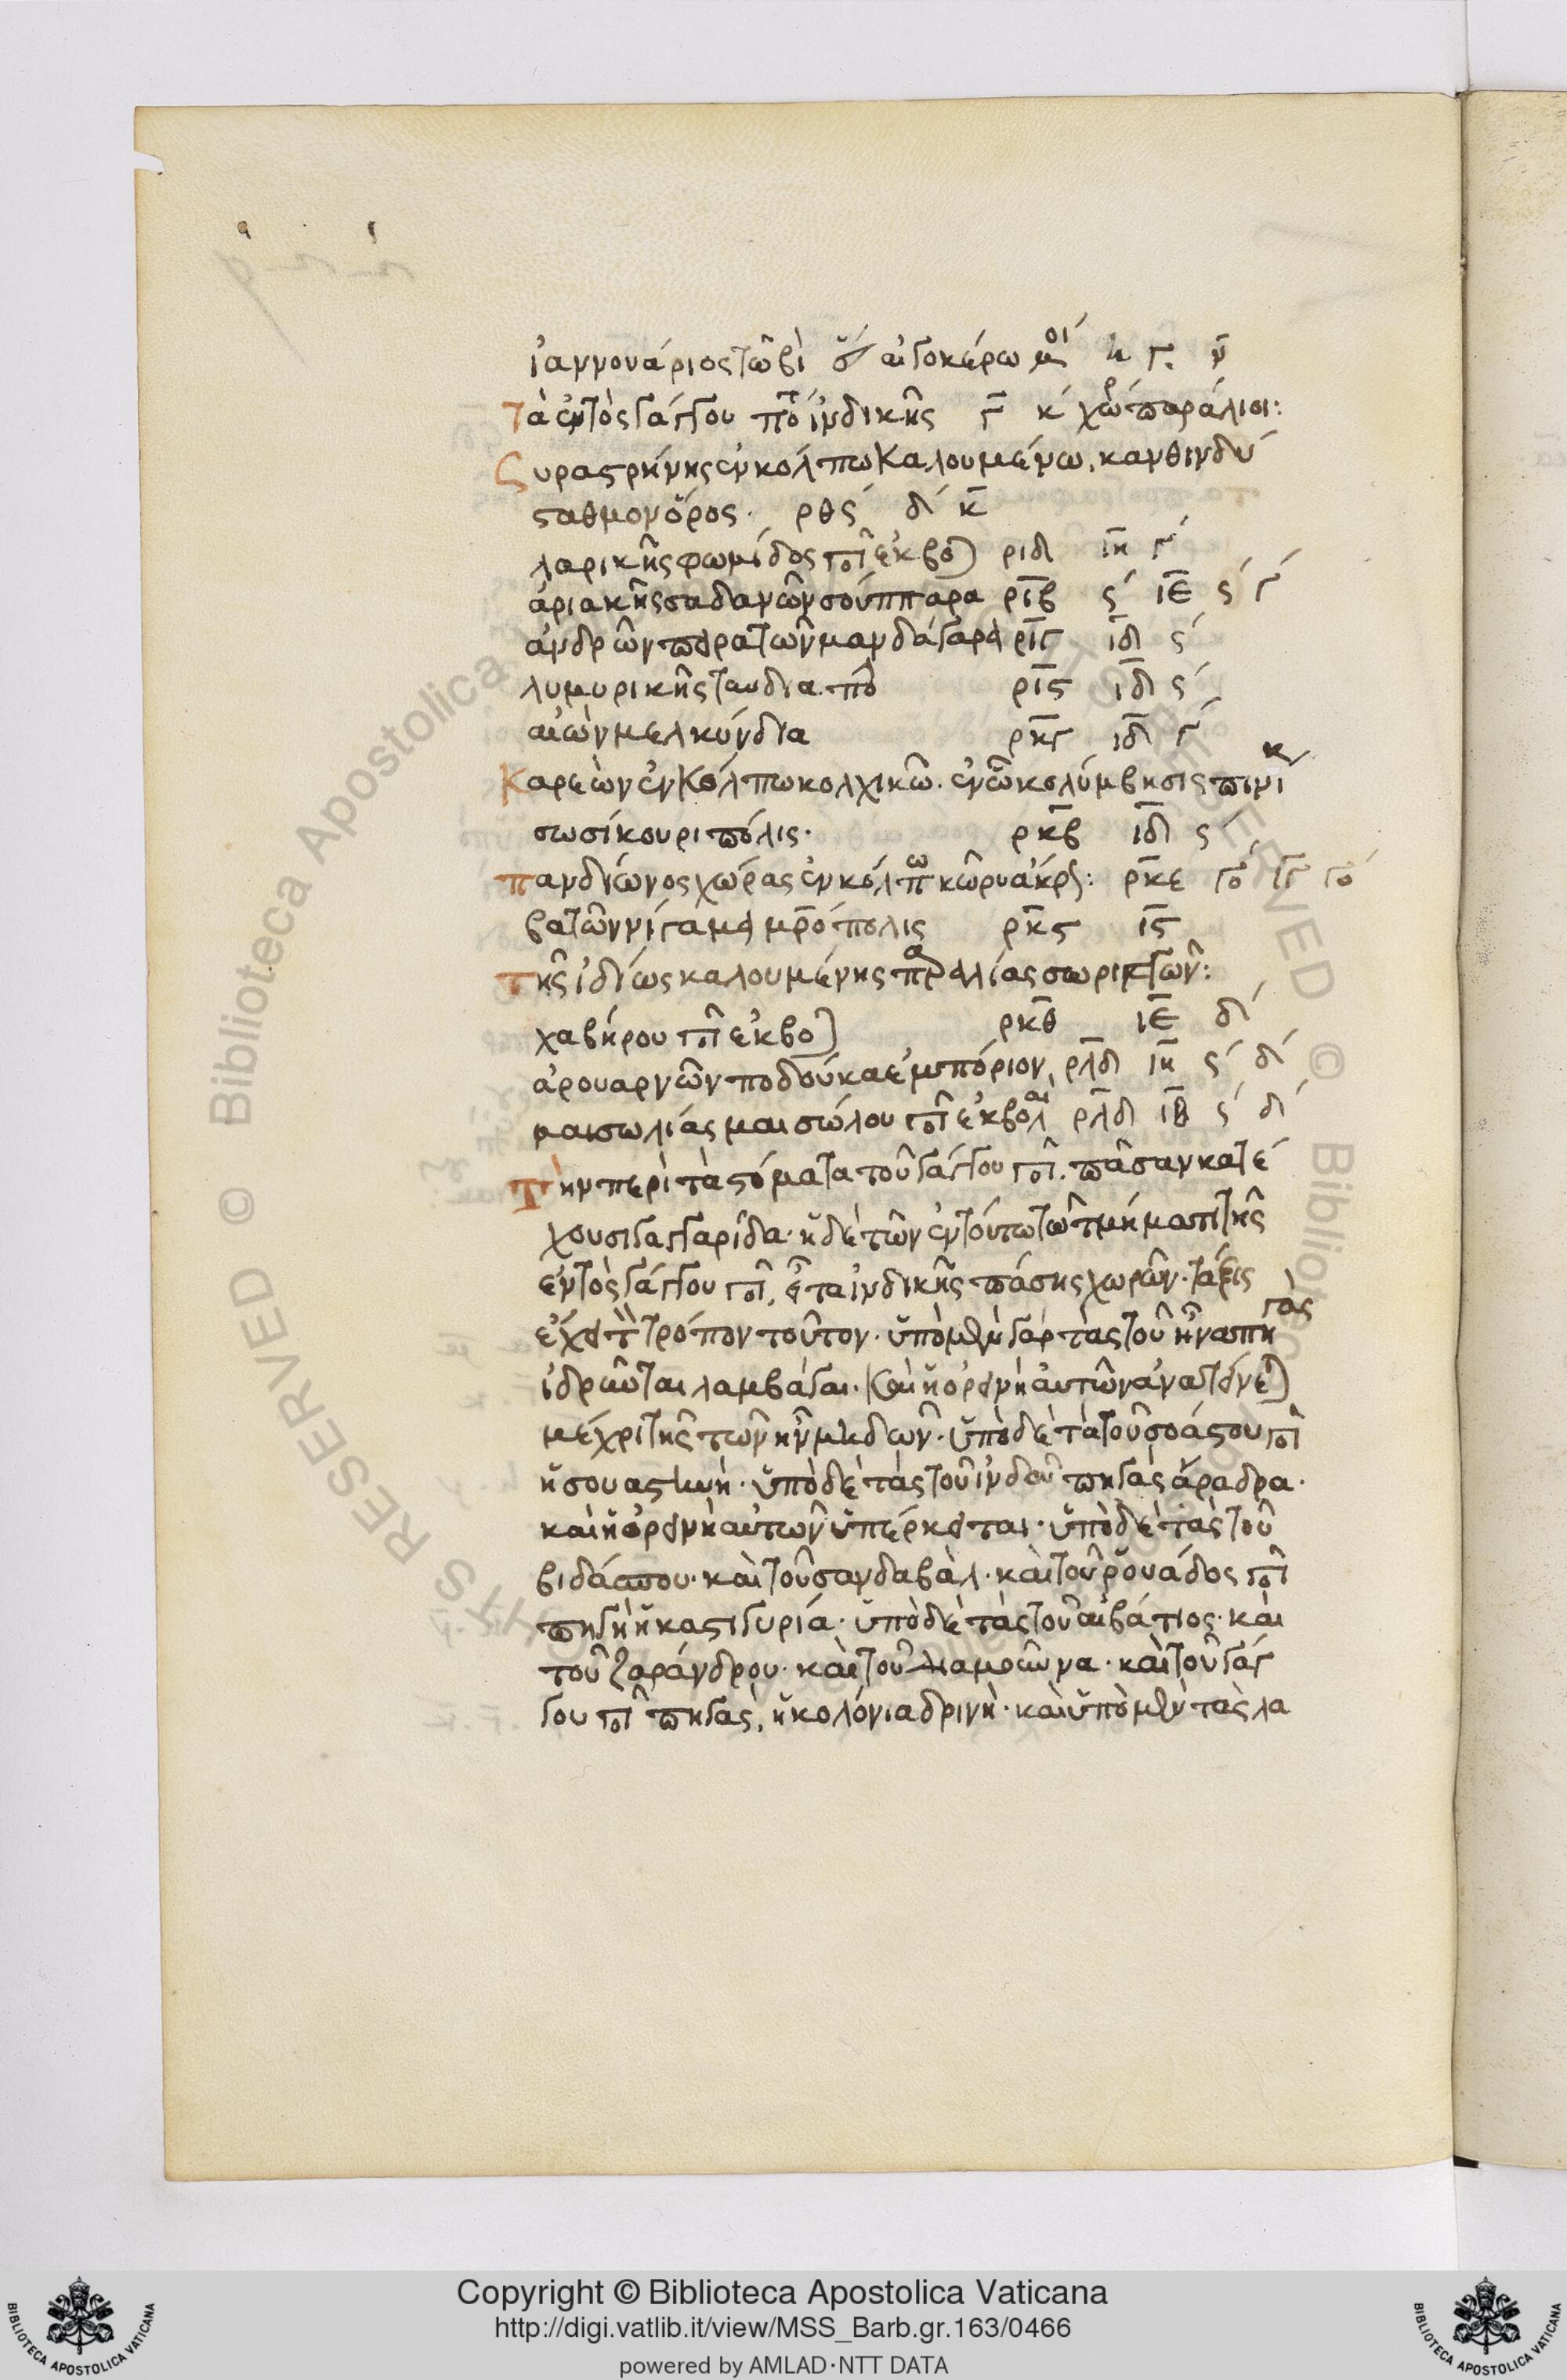 ἰαννουάριος τῶβι αἰγοκέρω
τὰ ἐντὸς γάγγου ποτ ἰνδικῆς γ κ χω παράλιοι:
Συραστρήνης ἐν κόλπω καλουμένω, κανθινδύ
σταθμον ὄρος. ρθς δ κ
λαρικῆς φωμίδος ποτ ἐκβο ριδ ιη γ
ἀριακῆς σαδανῶν σούππαρα ριβ ς ιε ς γ
ἀνδρῶν πειρατῶν μανδάγαρα ριγ ιδ ς
λυμυρικῆς τυνδια πο ρις ιδ ς
αἰὼν μελκύνδια ρκγ ιδ γ
Καρεὼν ἐν κόλπω κολχικῶ. ἐν ὧ κολύμβησις πινικ
σωσίκουρι πόλις. ρκβ ιδ ς
πανδίωνος χώρας ἐν κόλπω κῶρυ ἄκρ: ρκε γο ιγ γο
βατῶν νίγαμα μρόπολις ρκς ις
τῆς ἰδίως καλουμένης παραλίας σωριγγῶν:
χαβήρου ποτ ἐκβο ρκθ ιε δ
ἀρουαρνῶν ποδούκα ἐμπόριον, ρλδ ιη ς δ
μαισωλίας μαισώλου ποτ ἐκβολαὶ ρλδ ιβ ς δ
τὴν περὶ τὰ στόματα τοῦ γάγγου ποτ. πᾶσαν κατέ
χουσι γαγγαρίδα. ἡ δὲ τῶν ἐν τούτω τῶ τμήματι τῆς
ἐντὸς γάγγου ποτ, ἔτα ἰνδικῆς πάσης χωρῶν. τάξις
ἔχει τὸν τρόπον τοῦτον. ὑπὸ μὲν γὰρ τὰς τοῦ πη
γὰς
ἵδρωνται λαμβάγαι. καὶ ἡ ὀρεινὴ αὐτῶν ἀνατείνε
μέχρι τῆς τῶν κωμηδῶν. ὑπὸ δὲ τὰ τοῦ σοάστου ποτ
ἡ σουαστηνή. ὑπὸ δὲ τὰς τοῦ ἰνδοῦ πηγὰς ἄραδρα.
καὶ ἡ ὀρεινὴ αὐτῶν ὑπέρκειται. ὑπὸ δὲ τὰς τοῦ
βιδάσπου. καὶ τοῦ σανδαβάλ. καὶ τοῦ ῥουάδος ποτ
πηγὴ ἡ καστιγυρία. ὑπὸ δὲ τὰς τοῦ βιβάτιος. καὶ
τοῦ ζαράνδρου. καὶ τοῦ διαμρῶνα. καὶ τοῦ γάγ
γου ποτ πηγὰς, ἡ κολόνια δρινὴ. καὶ ὑπὸ μὲν τὰς λα
Copyright © Biblioteca Apostolica Vaticana
http://digi.vatlib.it/view/MSS_Barb.gr.163/0466
powered by AMLAD·NTT DATA